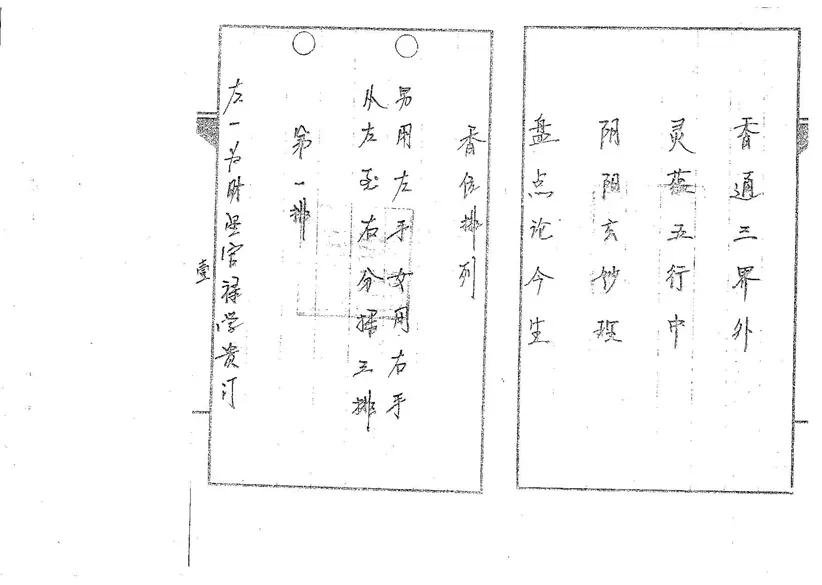 香通三界外
灵蕴五行中
阴阳玄妙班
盘点论今生
香位排列
男用左手女用右手
从左至右分掃三排
第一排
左一为财
官禄学贵
壹